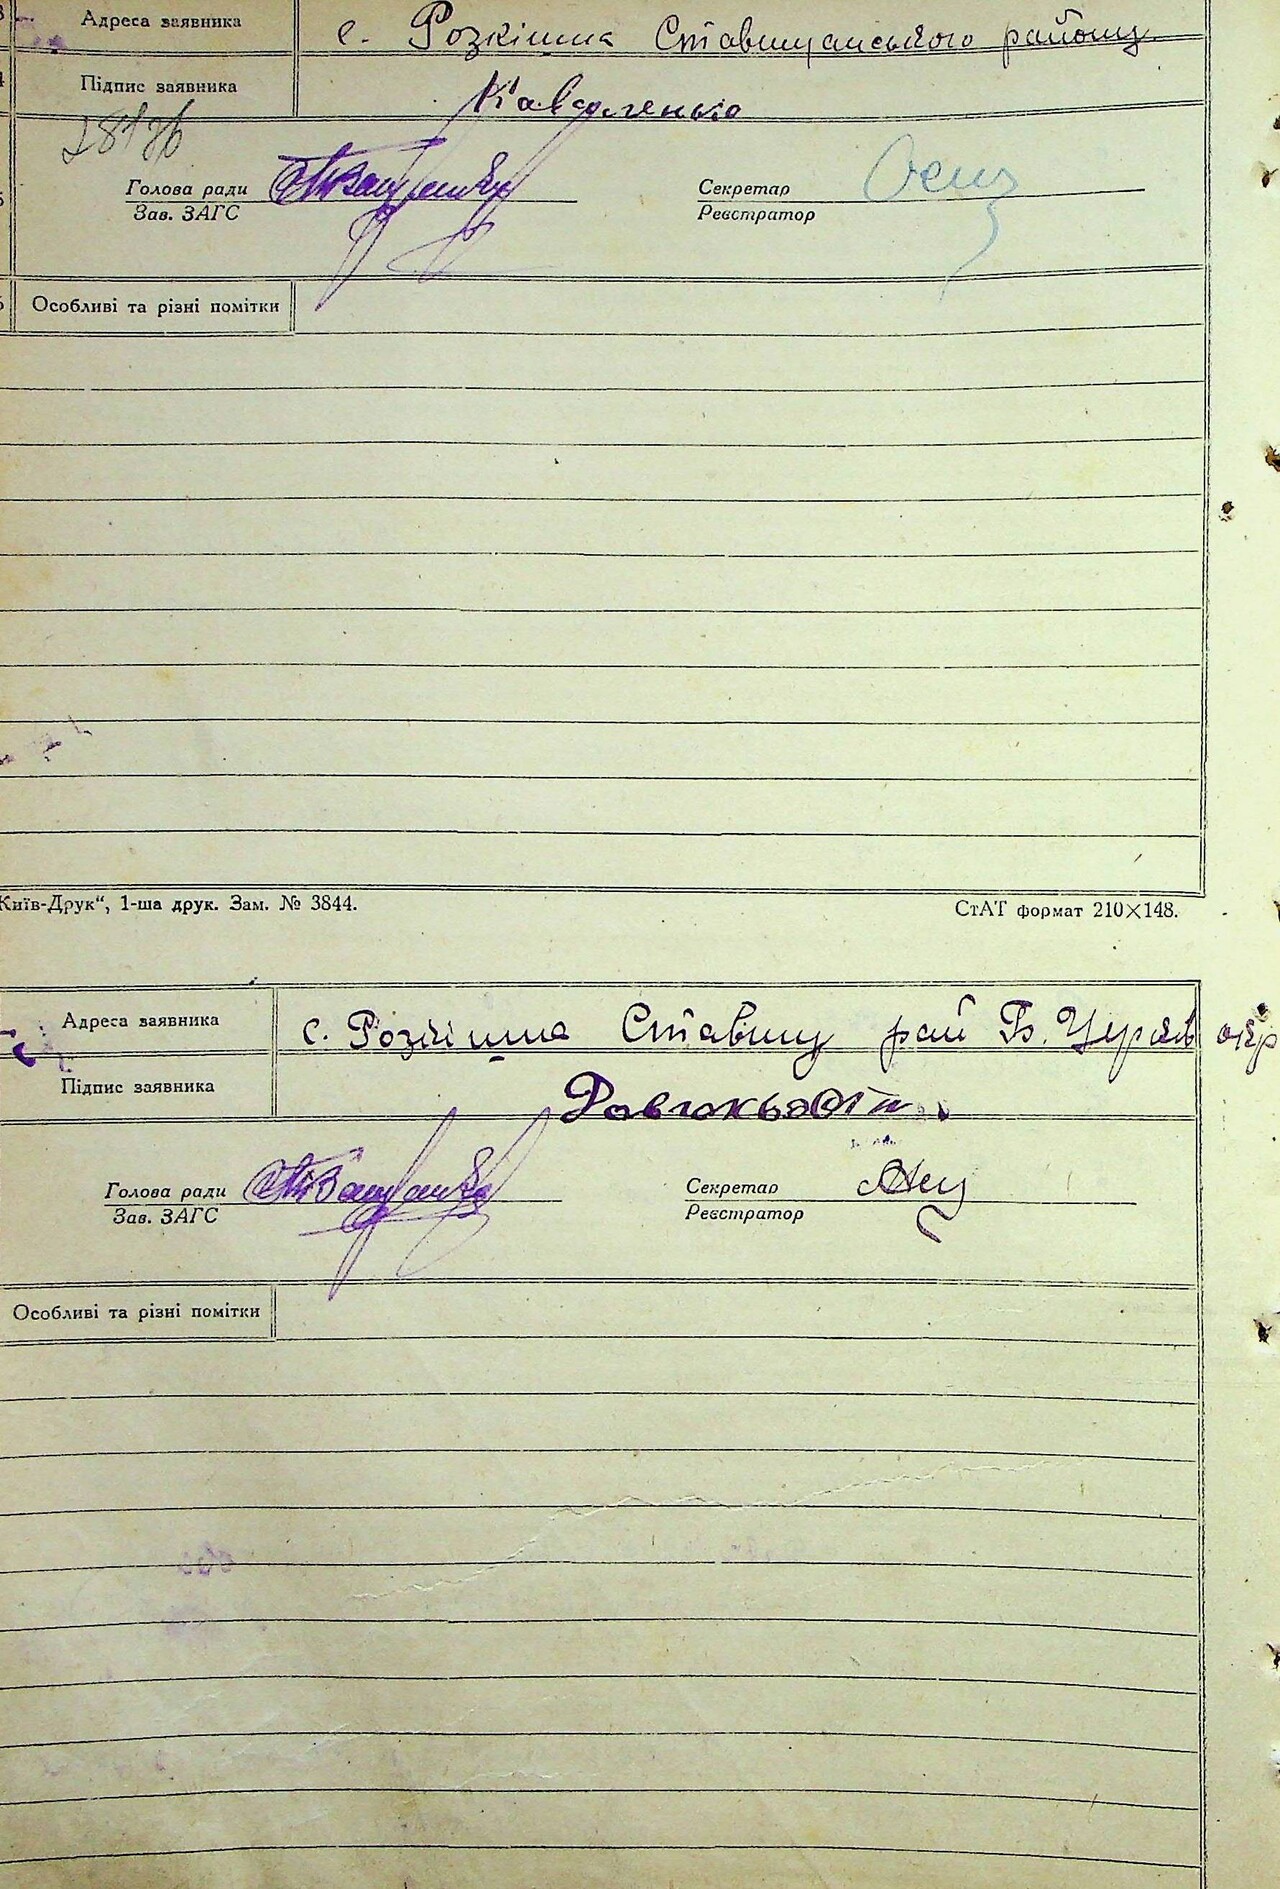 Адреса заявника с. Розкішна Ставищанського району
Підпис заявника
Голова ради Секретар
Зав. ЗАГС Реєстратор
Особливі та різні помітки
Київ-Друк“, 1-ша друк. Зам. № 3844. СтАТ формат 210×148.
Адреса заявника с. Розкішна Ставищ рай Б. Церків окр
Підпис заявника
Голова ради Секретар
Зав. ЗАГС Реєстратор
Особливі та різні помітки